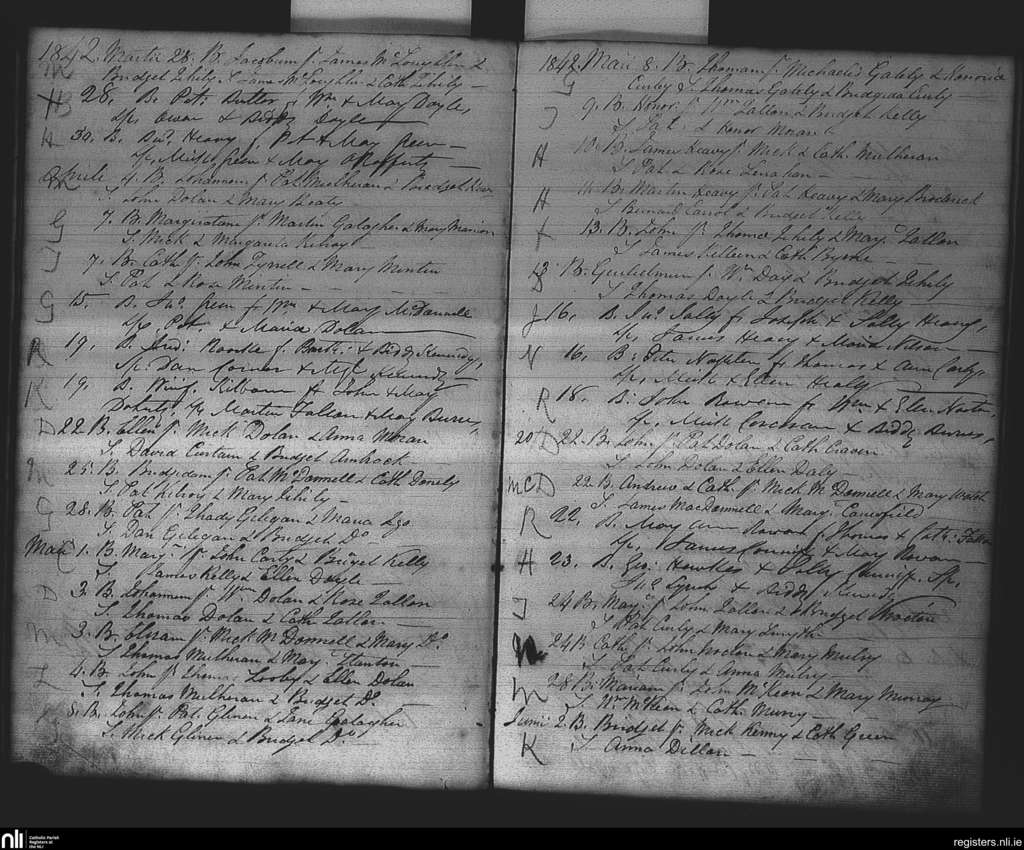 1842. Martii 28. B. Jacobum f. James McLoughlin &
Bridget Fehily S. James McLoughlin & Cath Fehily —
H 28, B. Pat: Butler f Wm & Mary Doyle,
Sp, Owen & Biddy Doyle
H 30. B. Heavy f, Pat & Mary Geen —
Sp, Mick Geen & Mary O Rafferty —
Aprile 4. B. Johannem f. Pat Mulheran & Bridget
S. John Dolan & Mary Beaty
G 7. B. Margaritam f. Martin Galagher & Mary Mannion
S. Mick & Margarita Kilroy
7. B. Cath f. John Tyrrell & Mary Minten
S. Pat & Rose Minten —
G 15. B. Geen f Wm & Mary McDannell
Sp, Pat & Maria Dolan
R 19, B. Roorke f. & Biddy Kennedy,
Sp. Dan Connor & Mgt Kennedy
K 19, B. Winif. Kilboun f John & Mary
Doherty, Sp Martin Fallon & Mary Burne,
D 22 B. Ellen f. Mick Dolan & Anna Moran
S. David Curtain & Bridget
M 25 B. Bridgidam f. Pat McDonnell & Cath
S. Pat Kilroy & Mary Fehily —
G 28. B. Pat f. Thady Gelegan & Maria Igo
S. Dan Gelegan & Bridget Do
Maii C 1. B. Mary f. John Carty & Bridget Kelly
S. James Kelly & Ellen Doyle —
D 3. B. Johannem f. Wm Dolan & Rose Fallon
S. Thomas Dolan & Cath Fallon —
M 3. B. f. Mick McDonnell & Mary Do
S. Thomas Mulheran & Mary Stanton
L 4. B. John f. Thomas Looby & Ellen Dolan
S. Thomas Mulheran & Bridget Do
8. B. John f. Pat. Glinen & Jane Galagher
S. Mick Glinen & Bridget Do
1842 Maii 8. B. Thomam f. Michaelis Gately & Honoria
G Curly S. Thomas Gately & Bridgida Curly
9. B. Honor f. Wm Fallon & Bridget Kelly
S. Pat. & Honor Moran
H 10. B. James Heavy f. Mick & Cath. Mulheran
S. Pat & Rose Lenahan —
H B. Martin Heavy f. Pat Heavy & Mary Broderick
S. Bernard Carrol & Bridget Kelly
13. B. John f. Thomas Fehily & Mary Fallon
S. James Killeen & Cath Byrne —
D 13 B. Guilielmum f. Wm Day & Bridget Fehily
S. Thomas Doyle & Bridget Kelly
J 16, B. Jolly f. Joseph & Polly Heavy,
Sp, James Heavy & Maria Nelson
N 16. B: Peter Naghten f. Thomas & Ann Carty
Sp, Mick & Ellen Healy
R 18. B: John Rowan f. Wm & Ellen
Sp, Mick Corcoran & Biddy Burnes,
20 D 22. B. John f. Pat Dolan & Cath Craven
S. John Dolan & Ellen Daly —
McD 22 B. Andrew & Cath. f. Mick McDonnell & Mary
S. James MacDonnell & Mary
R 22, B. Mary Ann Rowan f. Thomas & Cath: Fallon
Sp, James & Mary Rowan
H 23. B. Geo: Hawkes & Polly Sp,
Lynch & Biddy
24 B. Mary f. John Fallon & Bridget Norton
S. Pat Curly & Mary Smyth
N 24 B Cath f. John Norton & Mary Mulry
S. Pat Curly & Anna Mulry —
M 28 B. Mariam f. John McKeon & Mary Murray
S. Wm McKeon & Cath. Murry —
Junii 2. B. Bridget f. Mick Kenny & Cath Green
K S. Anna Dillon —
nli Catholic Parish
Registers at
the NLI
registers.nli.ie